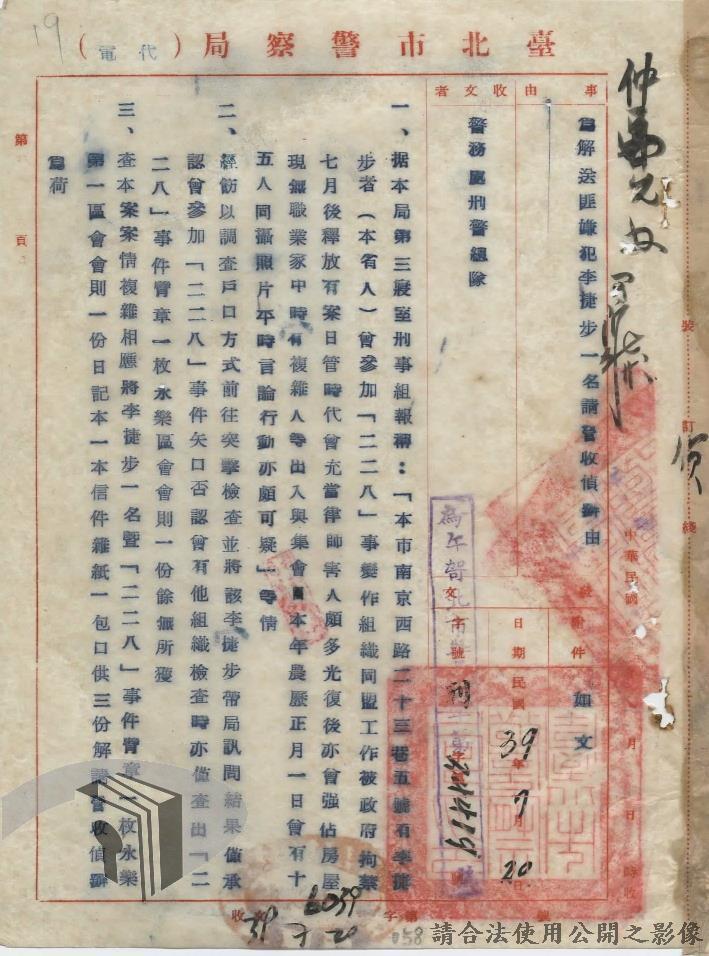 19
臺北市警察局（代電）
事由
收文者
為解送匪嫌犯李捷步一名請督收偵辦由
警務處刑警總隊
附件
如文
日期
民國39年7月20日
文
字號
中華民國
月
日
時收
一、据本局第三寢室刑事組報稱：「本市南京西路二十三巷五號有李捷
步者（本省人）曾參加「二二八」事變作組織同盟工作被政府拘禁
七月後釋放有案日管時代曾充當律師害人頗多光復後亦曾强佔房屋
現無職業家中時有複雜人等出入與集會本年農歷正月一日曾有十
五人同攝照片平時言論行動亦頗可疑」等情
二、經飭以調查戶口方式前往突擊檢查並將該李捷步帶局訊問結果僅承
認曾參加「二二八」事件矢口否認曾有他組織檢查時亦僅查出「二
二八」事件臂章一枚永樂區會會則一份餘無所獲
三、查本案案情複雜相應將李捷步一名暨「二二八」事件臂章一枚永樂
第一區會會則一份日記本一本信件雜紙一包口供三份解請督收偵辦
為荷
第
頁
裝
訂
綫
收文
字第
號
6059
39 7 20
058
請合法使用公開之影像